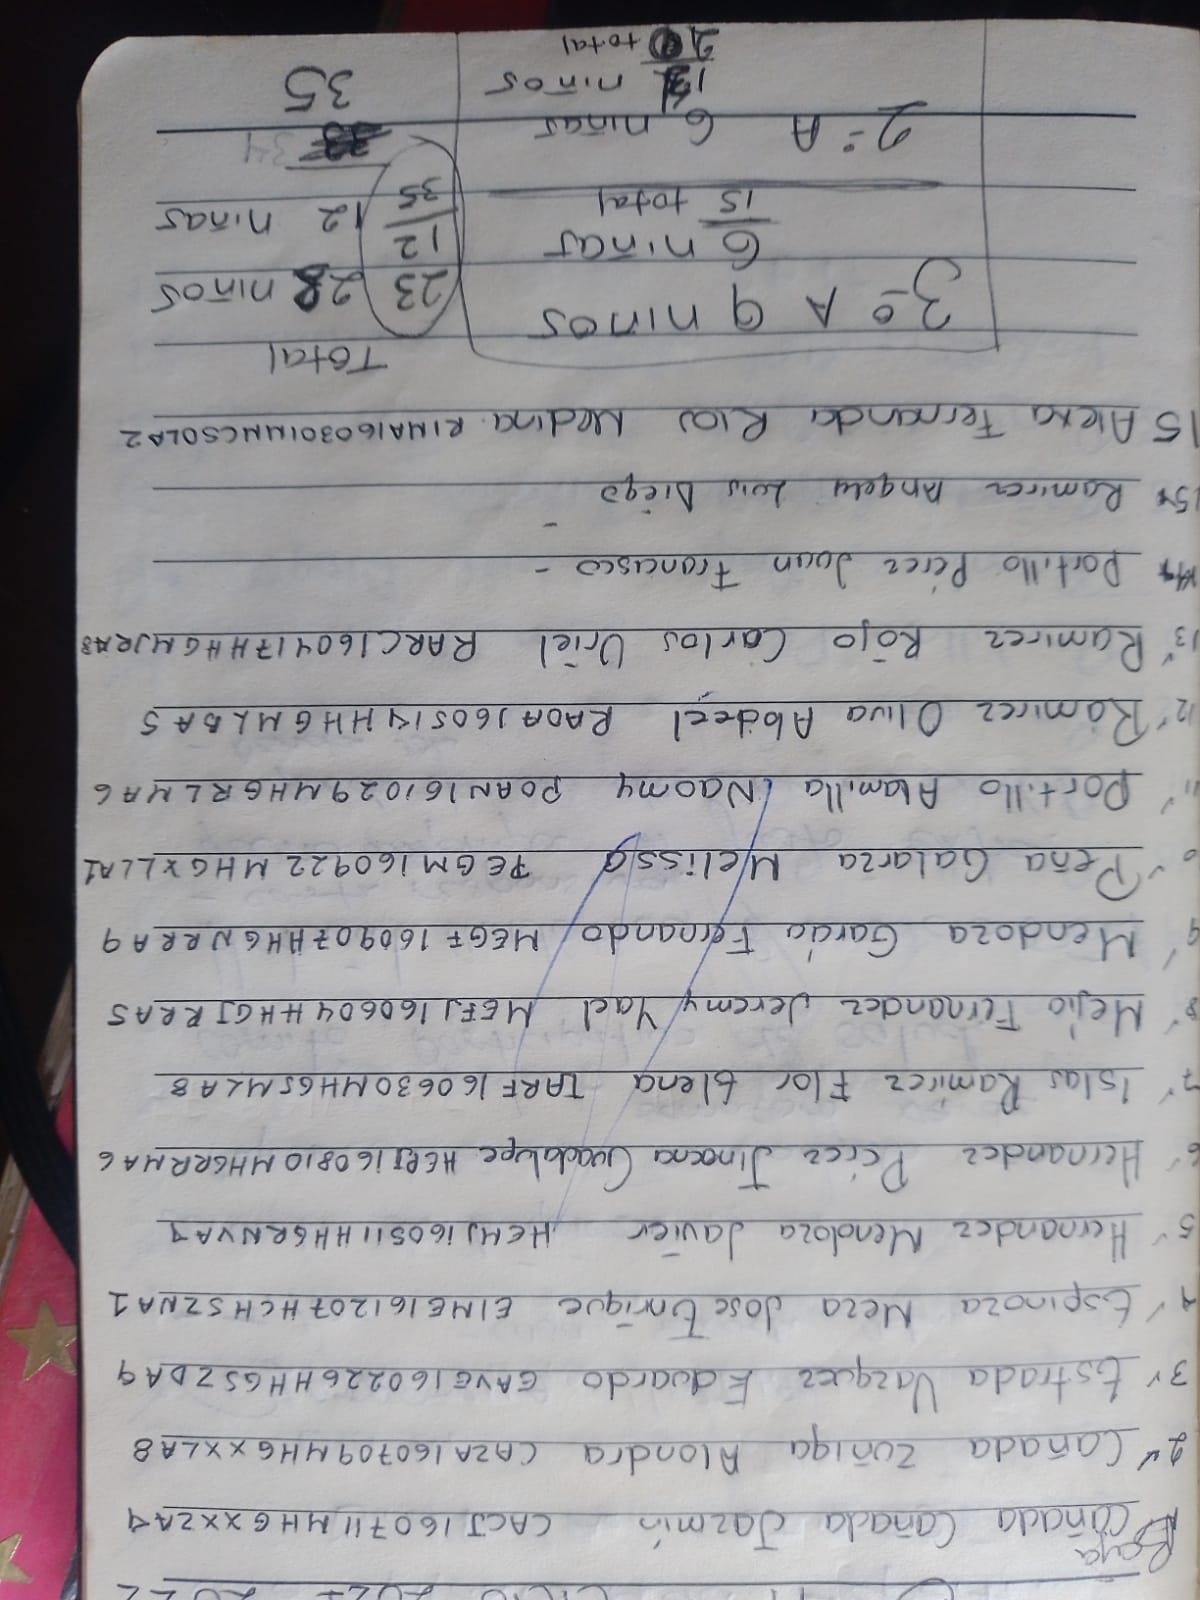 CICLO 2021 2022
Baja
Cañada Cañada Jazmín CACJ160711MHGXXZA4
2 Cañada Zuñiga Alondra CAZA160709MHGXXLA8
3 Estrada Vazquez Eduardo EAVE160226HHGSZDA9
4 Espinoza Meza Jose Enrique EIME161207HCHSZNA1
5 Hernandez Mendoza Javier HEMJ160511HHGRNVA9
6 Hernandez Pérez Jimena Guadalupe HEPJ160810MHGRRMA6
7 Islas Ramírez Flor Elena IARF160630MHGSMLA8
8 Mejia Fernandez Jeremy Yael MEFJ160604HHGJRRA5
9 Mendoza García Fernando MEGF160907HHGNRRA9
0 Peña Galarza Melissa PEGM160922MHGXLLA1
11 Portillo Alamilla Naomy POAN161029MHGRLMA6
12 Ramirez Oliva Abdeel RAOA160514HHGMLBA5
13 Ramirez Rojo Carlos Uriel RARC160417HHGMJRA8
14 Portillo Pérez Juan Francisco -
15 Ramirez Angeles Luis Diego -
15 Alexa Fernanda Rios Medina RIMA160301MMCSDLA2
Total
3º A 9 niños 23 28 niños
6 niñas 12 12 niñas
15 total 35
34
2º A 6 niñas 35
niños
total